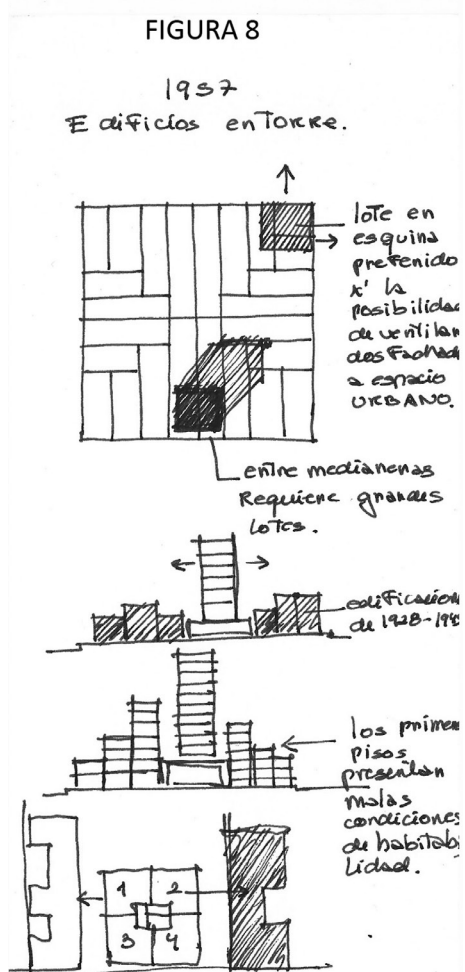 FIGURA 8
1957
Edificios en Torre.
lote en
esquina
preferido
x' la
posibilidad
de ventilar
dos fachada
a espacio
URBANO.
entre medianeras
Requiere grandes
Lotes.
edificacion
de 1928-194
los primer
pisos
presentan
malas
condiciones
de habitabi
lidad.
1 2
3 4